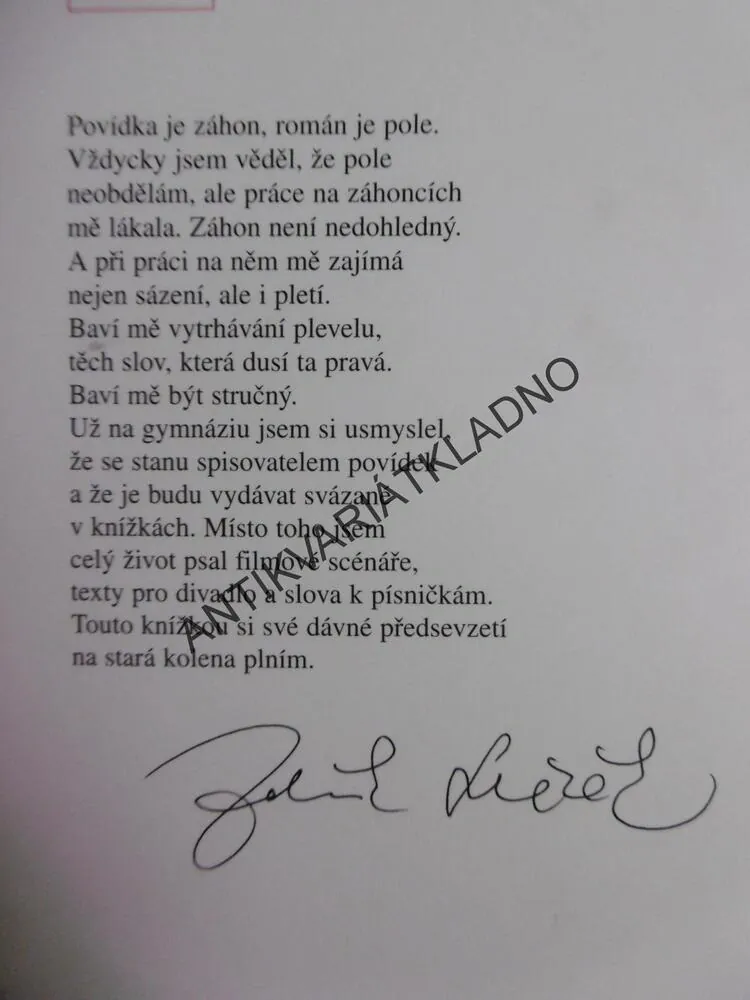 Povídka je záhon, román je pole.
Vždycky jsem věděl, že pole
neobdělám, ale práce na záhoncích
mě lákala. Záhon není nedohledný.
A při práci na něm mě zajímá
nejen sázení, ale i pletí.
Baví mě vytrhávání plevelu,
těch slov, která dusí ta pravá.
Baví mě být stručný.
Už na gymnáziu jsem si usmyslel,
že se stanu spisovatelem povídek
a že je budu vydávat svázané
v knížkách. Místo toho jsem
celý život psal filmové scénáře,
texty pro divadlo a slova k písničkám.
Touto knížkou si své dávné předsevzetí
na stará kolena plním.
ANTIKVARIÁTKLADNO
Zdeněk Svěrák